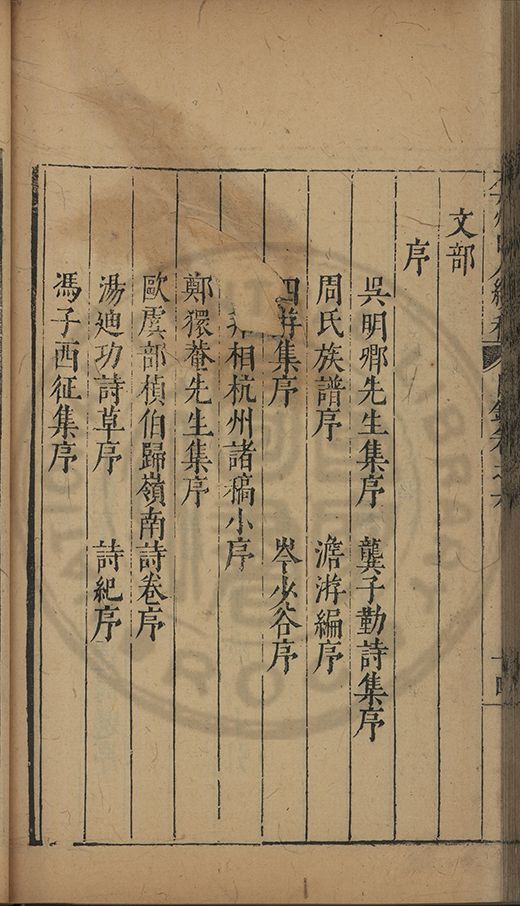 文部
序
吳明卿先生集序 龔子勤詩集序
周氏族譜序 澹游編序
四游集序 岑少谷序
相杭州諸稿小序
鄭獧菴先生集序
歐虞部楨伯歸嶺南詩卷序
湯迪功詩草序 詩紀序
馮子西征集序